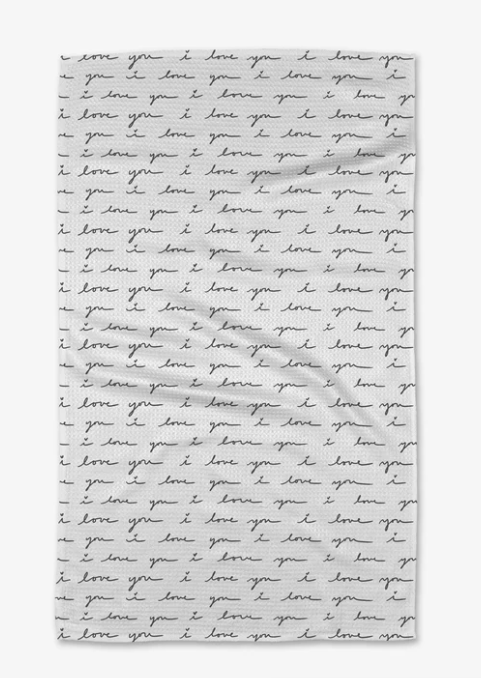 i love you i love you i love you
e you i love you i love you i
i love you i love you i love yo
i love you i love you i love you
e you i love you i love you i
i love you i love you i love yo
i love you i love you i love you
e you i love you i love you i
i love you i love you i love yo
i love you i love you i love you
e you i love you i love you i
i love you i love you i love yo
i love you i love you i love you
e you i love you i love you i
i love you i love you i love yo
i love you i love you i love you
e you i love you i love you i
i love you i love you i love yo
i love you i love you i love you
e you i love you i love you i
i love you i love you i love yo
i love you i love you i love you
e you i love you i love you i
i love you i love you i love yo
i love you i love you i love you
e you i love you i love you i
i love you i love you i love yo
i love you i love you i love you
e you i love you i love you i
i love you i love you i love yo
i love you i love you i love you